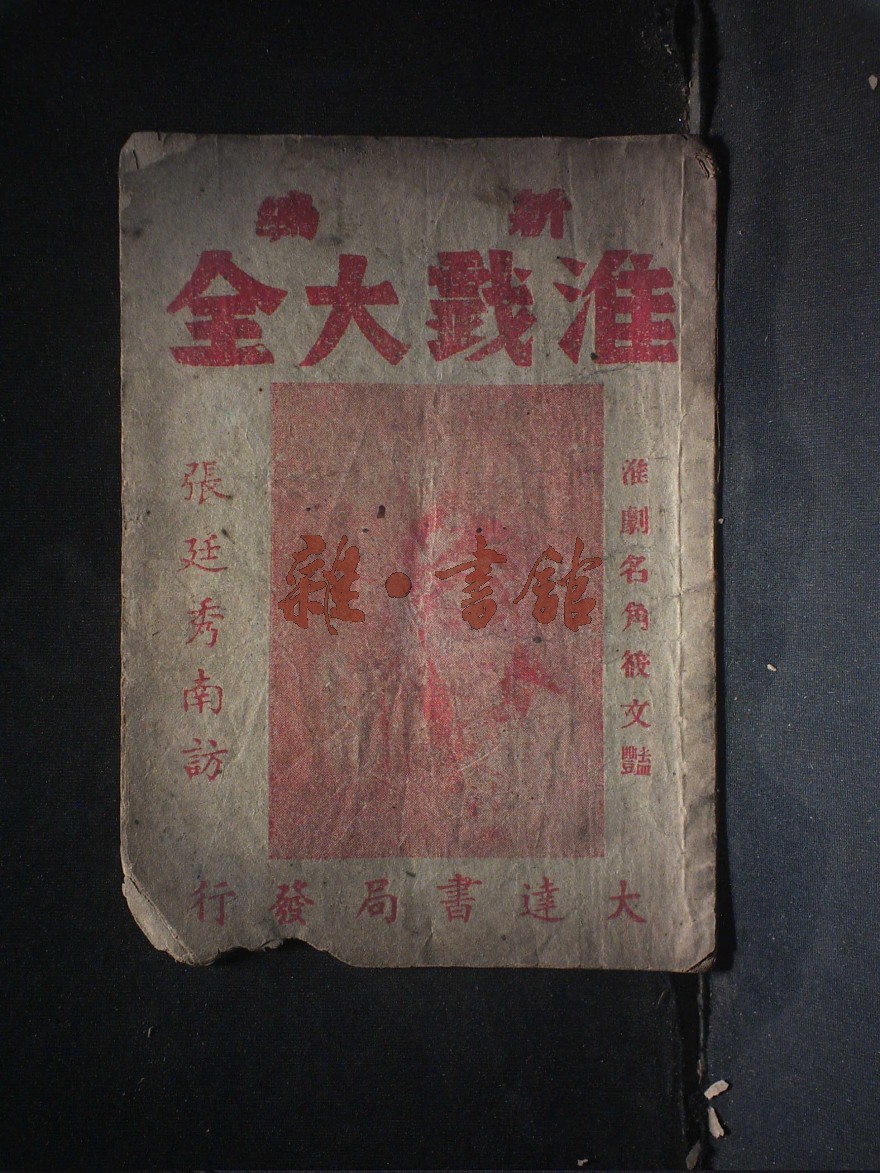 新編
淮戲大全
淮劇名角筱文豔
雜·書館
張廷秀南訪
大達書局發行